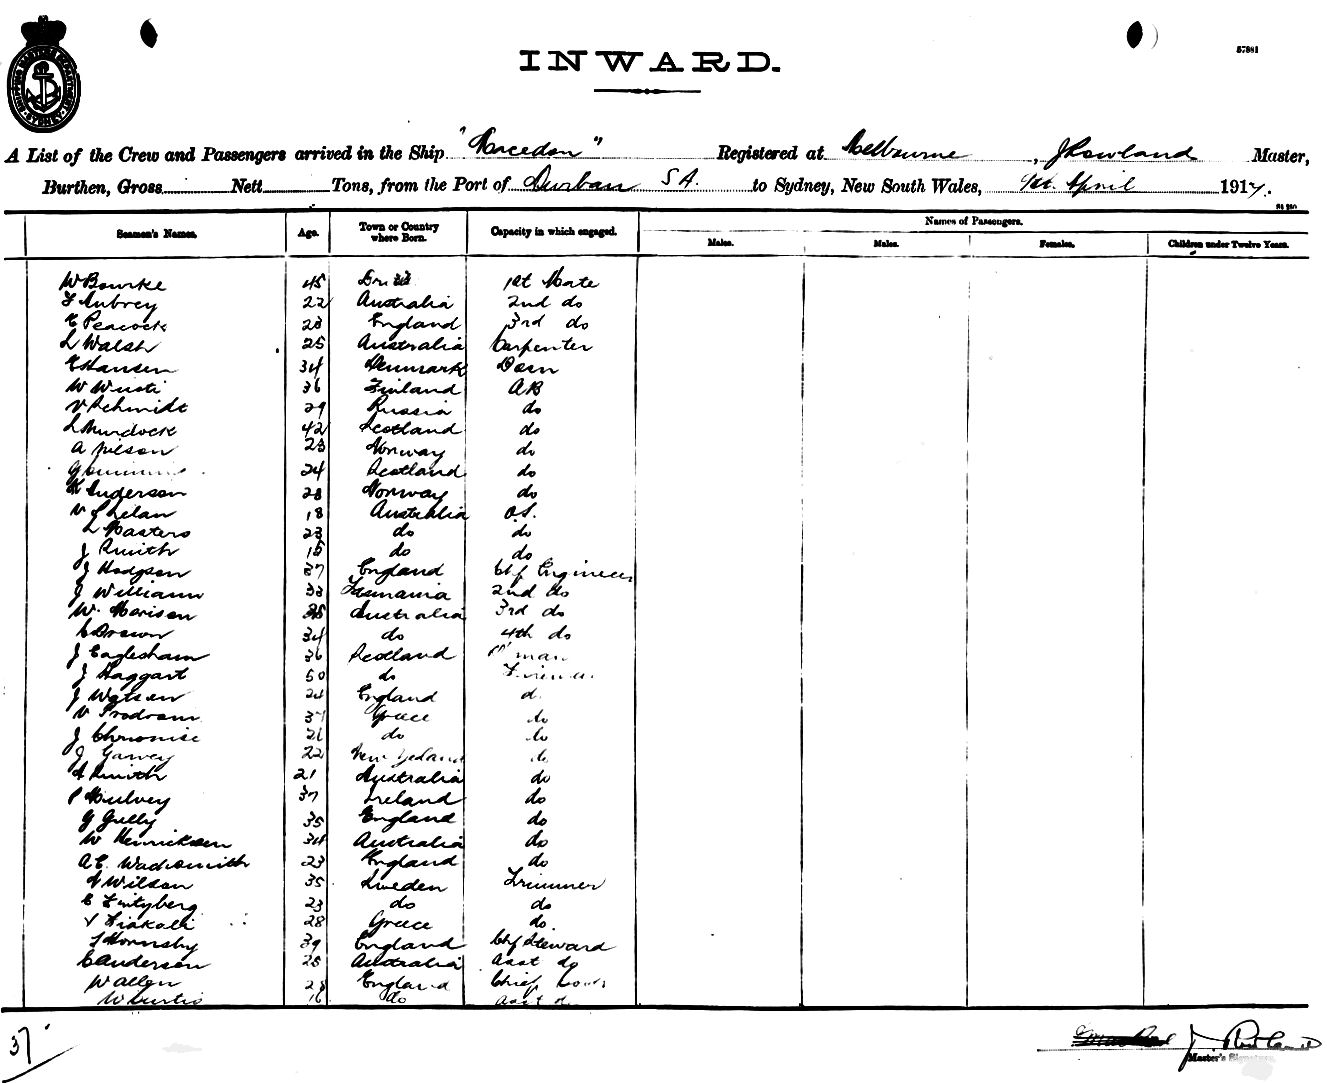 SHIPPING MASTER'S DEPARTMENT SYDNEY
57981
INWARD.
A List of the Crew and Passengers arrived in the Ship "Macedon" Registered at Melbourne, J Rowland Master,
Burthen, Gross Nett Tons, from the Port of Durban SA. to Sydney, New South Wales, 1st April 1917.
Names of Passengers.
Seamen's Names. Age. Town or Country where Born. Capacity in which engaged. Males. Males. Females. Children under Twelve Years.
W Bourke 45 1st Mate
F Aubrey 22 Australia 2nd do
E Peacock 23 England 3rd do
L Walsh 25 Australia Carpenter
E Hansen 34 Denmark Bosn
W Wusti 36 Finland AB
V Schmidt 29 Russia do
L Murdock 42 Scotland do
A Nilson 23 Norway do
G 24 Scotland do
K Anderson 28 Norway do
V Phelan 18 Australia O.S.
L Masters 23 do do
J Smith 18 do do
J Hodgson 37 England Chf Engineer
J Williams 33 Tasmania 2nd do
W. Morison Australia 3rd do
C Brown 34 do 4th do
J Eaglesham 36 Scotland man
J Haggart 50 do Fireman
J Watson 24 England d
V Prodrom 37 Grece do
J Chronise 21 do do
J Garvey 22 New Zeland do
A Smith 21 Australia do
P Mulvey 37 Ireland do
G Gully 35 England do
W Henricksen 34 Australia do
A.E. Wadsmith 23 England do
A Wilson 35 Sweden Trimmer
C Lintyberg 23 do do
V Fiakalli 28 Grece do.
F Hornsby 39 England Chf Steward
C Anderson 25 Australia Asst do
W Allen 28 England Chief Cook
W Curtis 16 do Asst d
37
J. Rowland
Master's Signature.